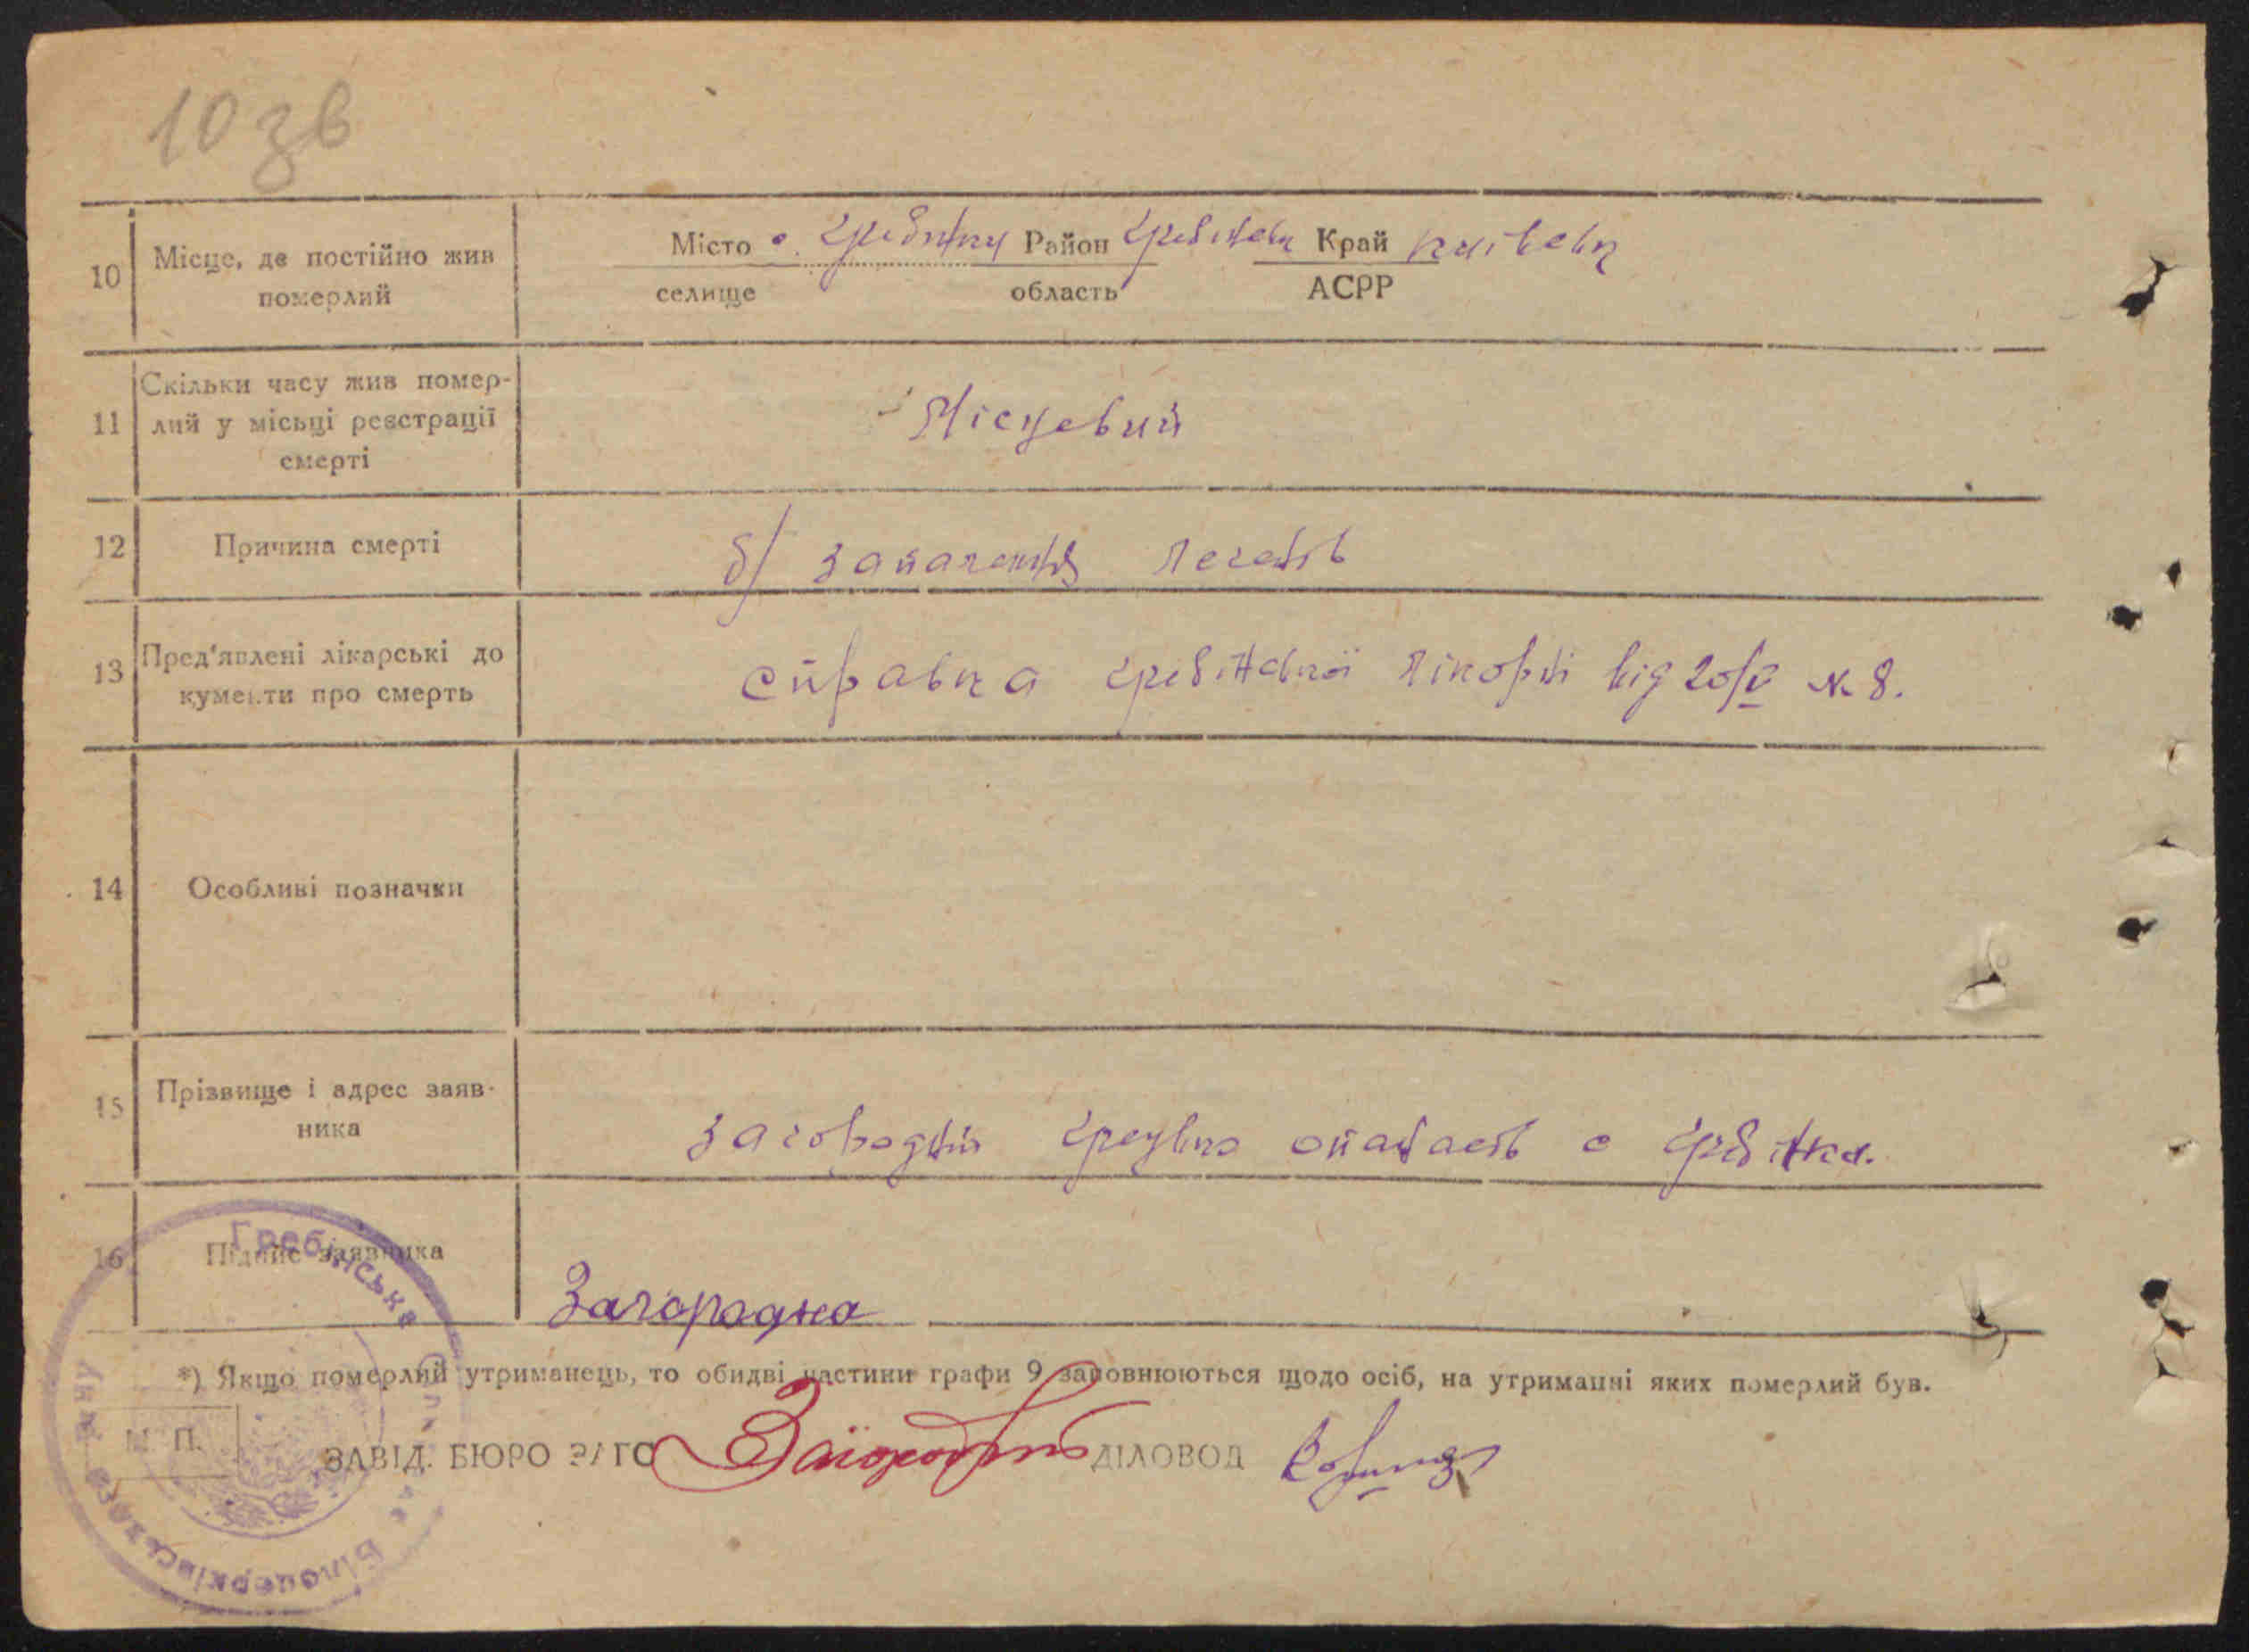 10 зв
10 Місце, де постійно жив померлий
Місто с. Гребінки Район Гребінськ Край Київськ
селище область АСРР
11 Скільки часу жив помер-
лий у місьці реєстрації
смерті
Місцевий
12 Причина смерті
б/ запалення легенів
13 Пред'явлені лікарські до
кументи про смерть
справка Гребінської лікарні від 20/V № 8.
14 Особливі позначки
15 Прізвище і адрес заяв-
ника
Загородня с Гребінка.
16 Підпис заявника
Загородня
*) Якщо померлий утриманець, то обидві частини графи 9 заповнюються щодо осіб, на утриманні яких померлий був.
М. П.
ЗАВІД. БЮРО ЗАГС ДІЛОВОД
Гребінська Білоцерківського р-ну